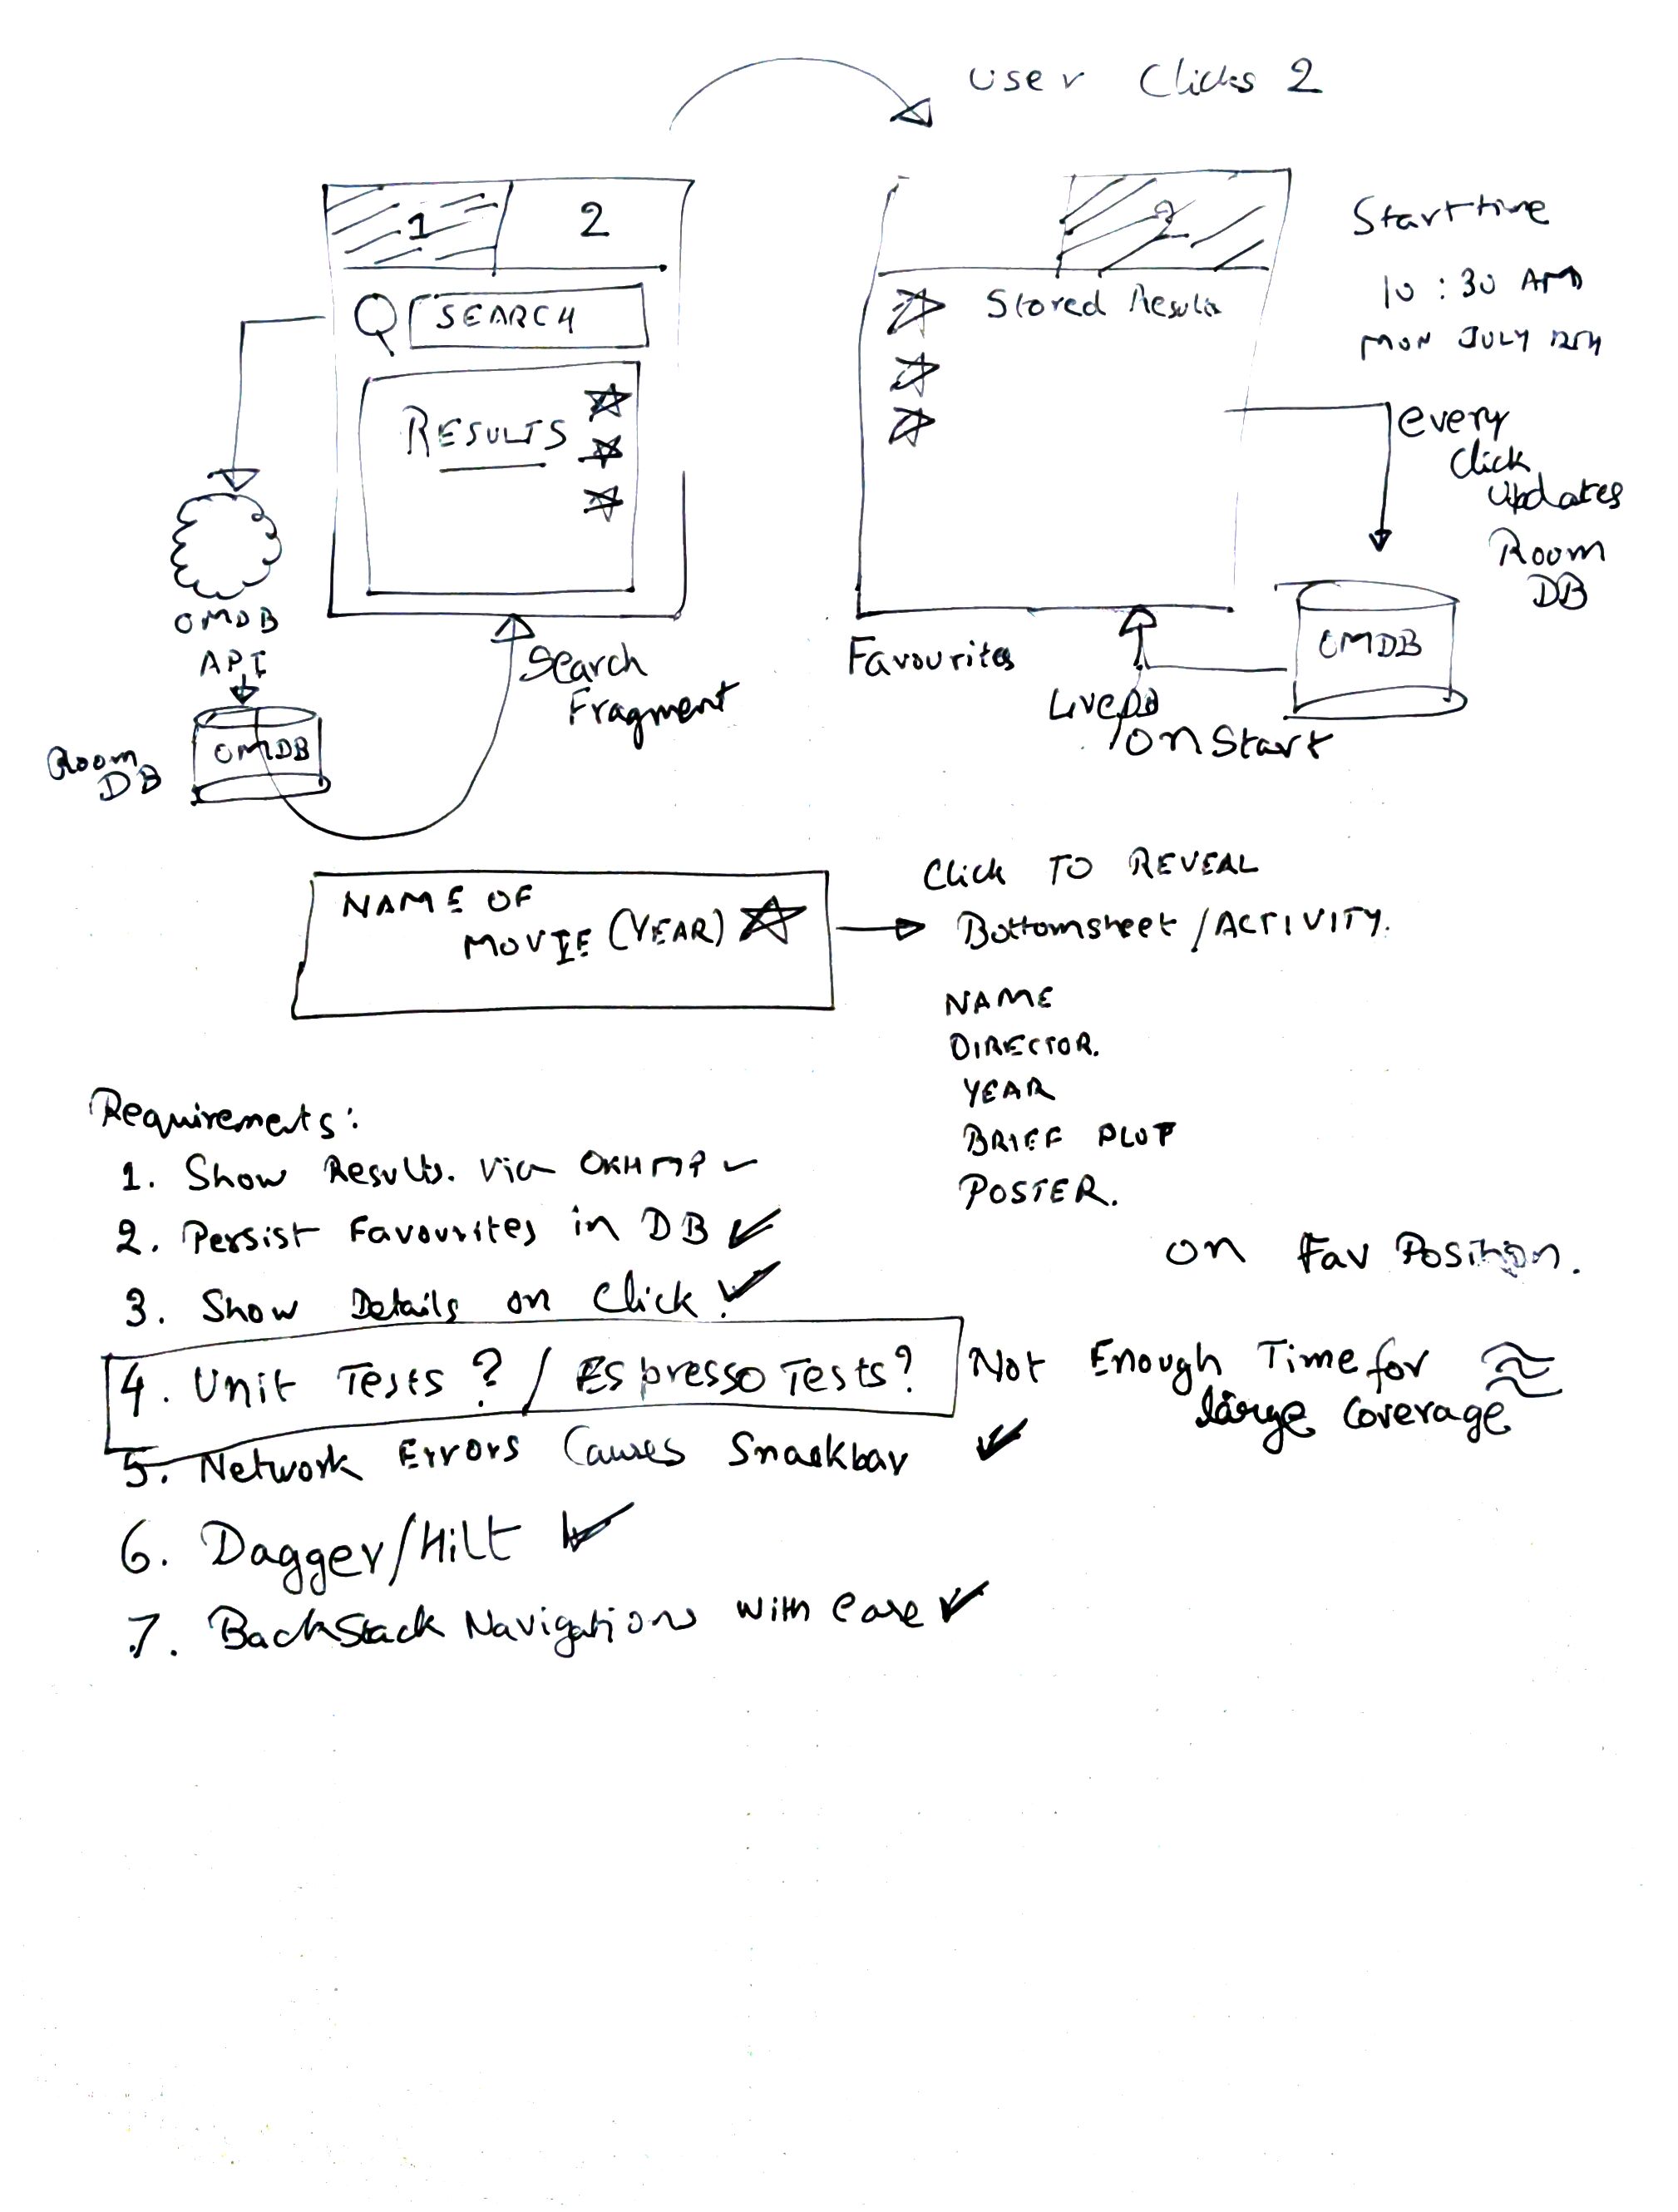 User Clicks 2
1 2
SEARCH
RESULTS
OMDB
API
Room
DB
OMDB
Search
Fragment
2
Stored Results
Favourites
onStart
Start time
10:30 AM
MON JULY 12TH
every
Click
updates
Room
DB
OMDB
NAME OF
MOVIE (YEAR)
Click TO REVEAL
Bottomsheet / ACTIVITY.
NAME
DIRECTOR.
YEAR
BRIEF PLOT
POSTER.
on Fav Position.
Requirements:
1. Show Results. Via OKHTTP
2. Persist Favourites in DB
3. Show Details on Click.
4. Unit Tests? / Espresso Tests?
Not Enough Time for
large coverage
5. Network Errors Causes Snackbar
6. Dagger/Hilt
7. BackStack Navigations with ease